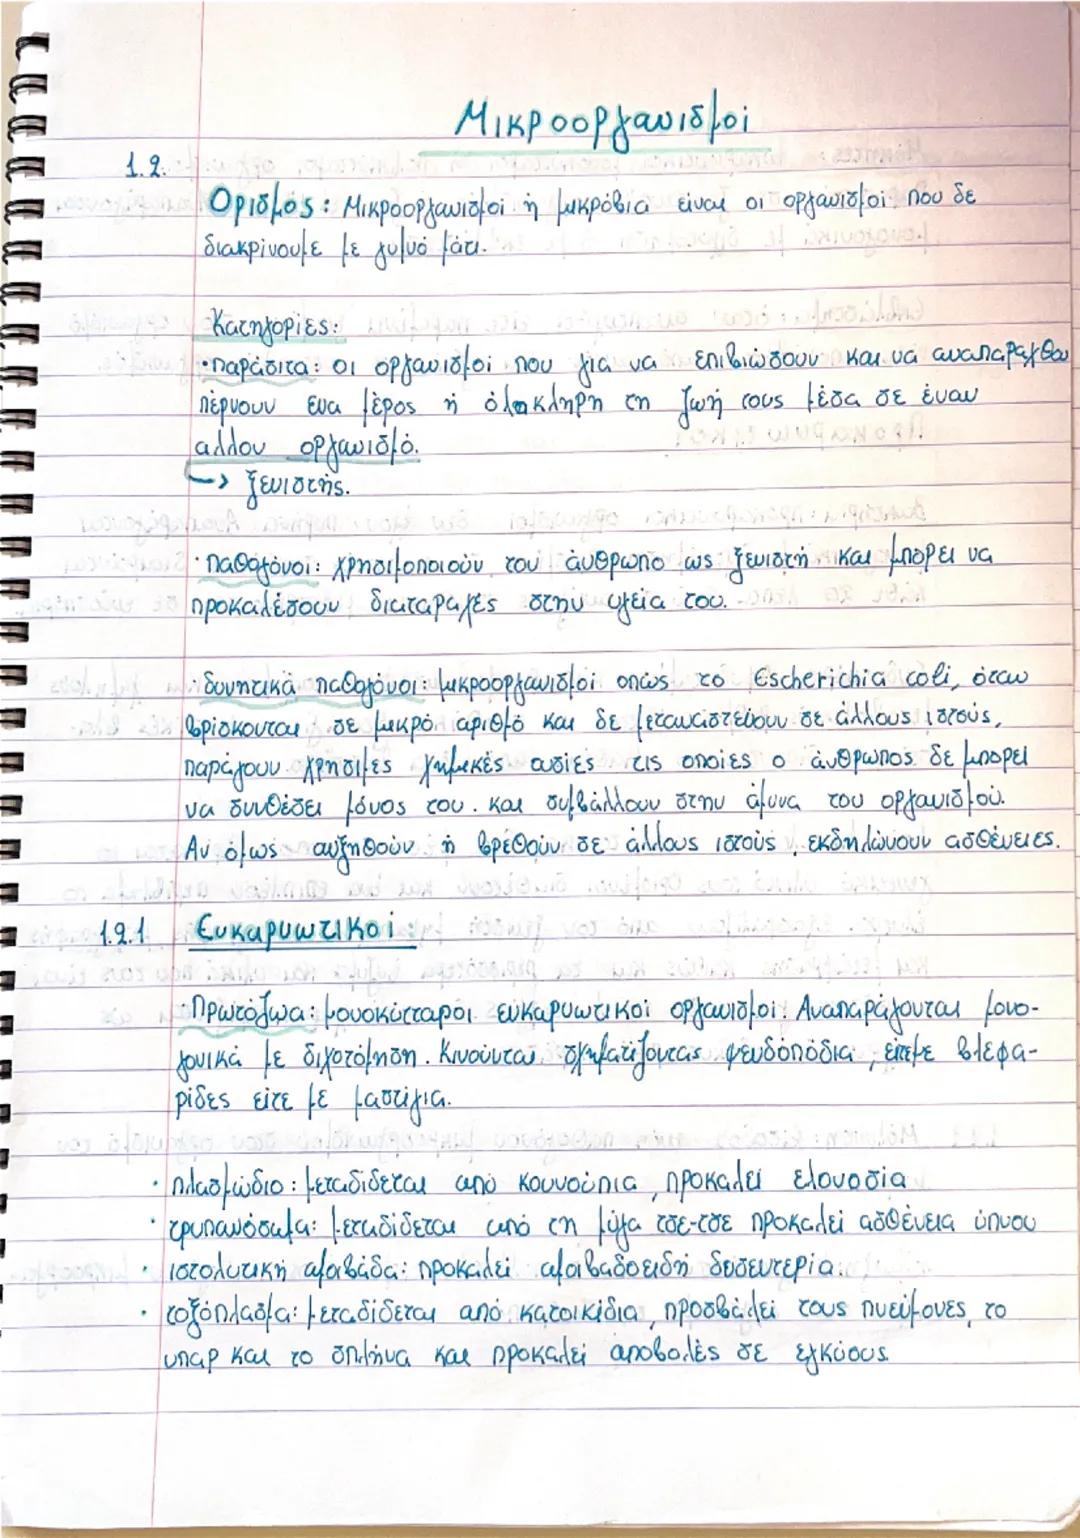 Μικροοργανισμοί
1.2.
Ορισμός: Μικροοργανισμοί ή μικρόβια είναι οι οργανισμοί που δε
διακρίνουμε με γυμνό μάτι.
Κατηγορίες:
·παράσιτα: οι οργανισμοί που για να επιβιώσουν και να αναπαραχθου
πέρνουν ενα μέρος ή ολοκληρη τη ζωή τους μέσα σε έναν
αλλον οργανισμό.
↳ ξενιστής.
·παθογόνοι: χρησιμοποιούν τον άνθρωπο ως ξενιστή και μπορει να
προκαλέσουν διαταραχές στην υγεία του.
·δυνητικά παθογόνοι: μικροοργανισμοί οπώς το Escherichia coli, όταν
βρίσκονται σε μικρό αριθμό και δε μεταναστεύουν σε άλλους ιστούς,
παράγουν χρήσιμες χημικές ουσίες τις οποίες ο άνθρωπος δε μπορεί
να συνθέσει μόνος του. και συμβάλλουν στην άμυνα του οργανισμού.
Αν όμως αυξηθούν ή βρεθούν σε άλλους ιστούς, εκδηλώνουν ασθένειες.
1.2.1 Ευκαρυωτικοί:
·Πρωτόζωα: μονοκύτταροι ευκαρυωτικοί οργανισμοί. Αναπαράγονται μονο-
γονικά με διχοτόμηση. Κινούνται σχηματίζοντας ψευδόπόδια, είτε βλεφα-
ρίδες είτε με μαστίγια.
· πλασμώδιο: μεταδίδεται από κουνούπια, προκαλεί ελονοσία
· τρυπανόσωμα: μεταδίδεται από τη μύγα τσε-τσε προκαλεί ασθένεια ύπνου
· ιστολυτική αμοιβάδα: προκαλεί αμοιβαδοειδή δυσεντερία.
· τοξόπλασμα: μεταδίδεται από κατοικίδια, προσβάλει τους πνεύμονες, το
υπαρ και το σπλήνα και προκαλεί αποβολές σε εγκύους.